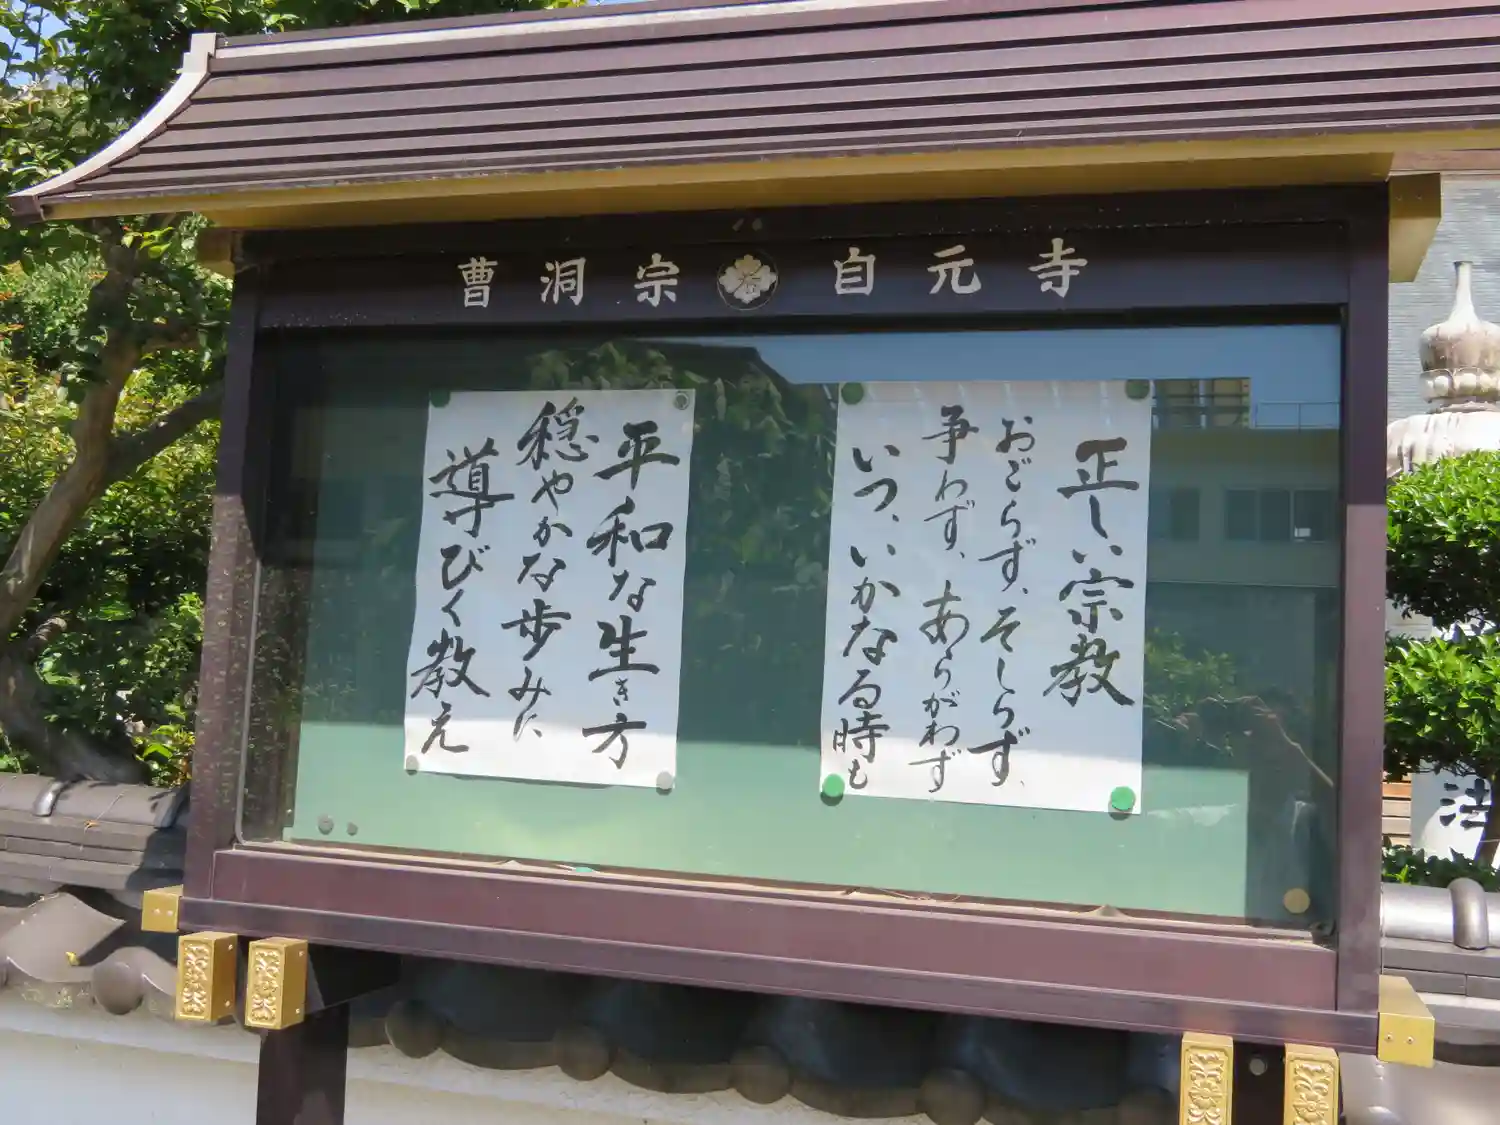 曹洞宗 自元寺
正しい宗教
おごらず、そしらず、
争わず、あらがわず
いつ、いかなる時も
平和な生き方
穏やかな歩みに
導びく教え
法